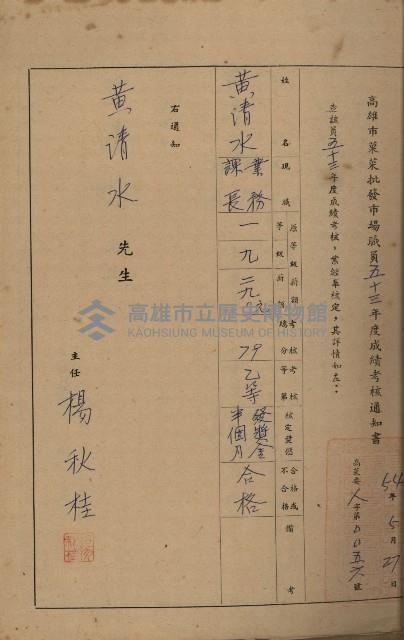 高雄市菓菜批發市場職員五十三年度成績考核通知書
54年5月27日
高菓安人字第〇〇五六號
查該員五十三年度成績考核,業經奉核定,其詳情如左:
姓名
現職
原等級
薪額
考核總分
考核等第
核定獎懲
合格或不合格
備考
黃清水
業務課長
一
九
79
乙等
發獎金半個月
合格
右通知
黃清水 先生
主任 楊秋桂
高雄市立歷史博物館
KAOHSIUNG MUSEUM OF HISTORY